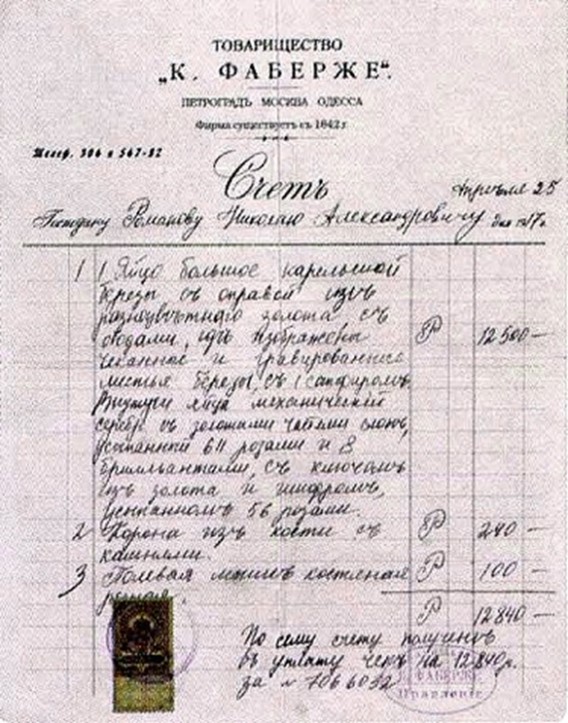 ТОВАРИЩЕСТВО
„К. ФАБЕРЖЕ“.
ПЕТРОГРАДЪ МОСКВА ОДЕССА
Фирма существуетъ съ 1842 г.
Телеф. 306 и 567-82
Счетъ
Апреля 25
Господину Романову Николаю Александровичу дня 1917г.
1 1 Яйцо большое карельской
березы съ оправой изъ
разноцвѣтнаго золота съ
ободами, гдѣ изображены
чеканные и гравированные
листья березы, съ 1 сапфиромъ. Р 12.500 —
Внутри яйца механический
серебр. съ золотыми слонъ,
усыпанный 611 розами и 8
брилльантами, съ ключомъ
изъ золота и
усыпанномъ 56 розами.
2 Корона изъ кости съ Р 240 —
камнями.
3 Полевая костяная Р 100 —
Р 12.840 —
По сему счету получено
въ уплату чекъ на 12.840 р.
за № 7066032
К. ФАБЕРЖЕ
Правленіе